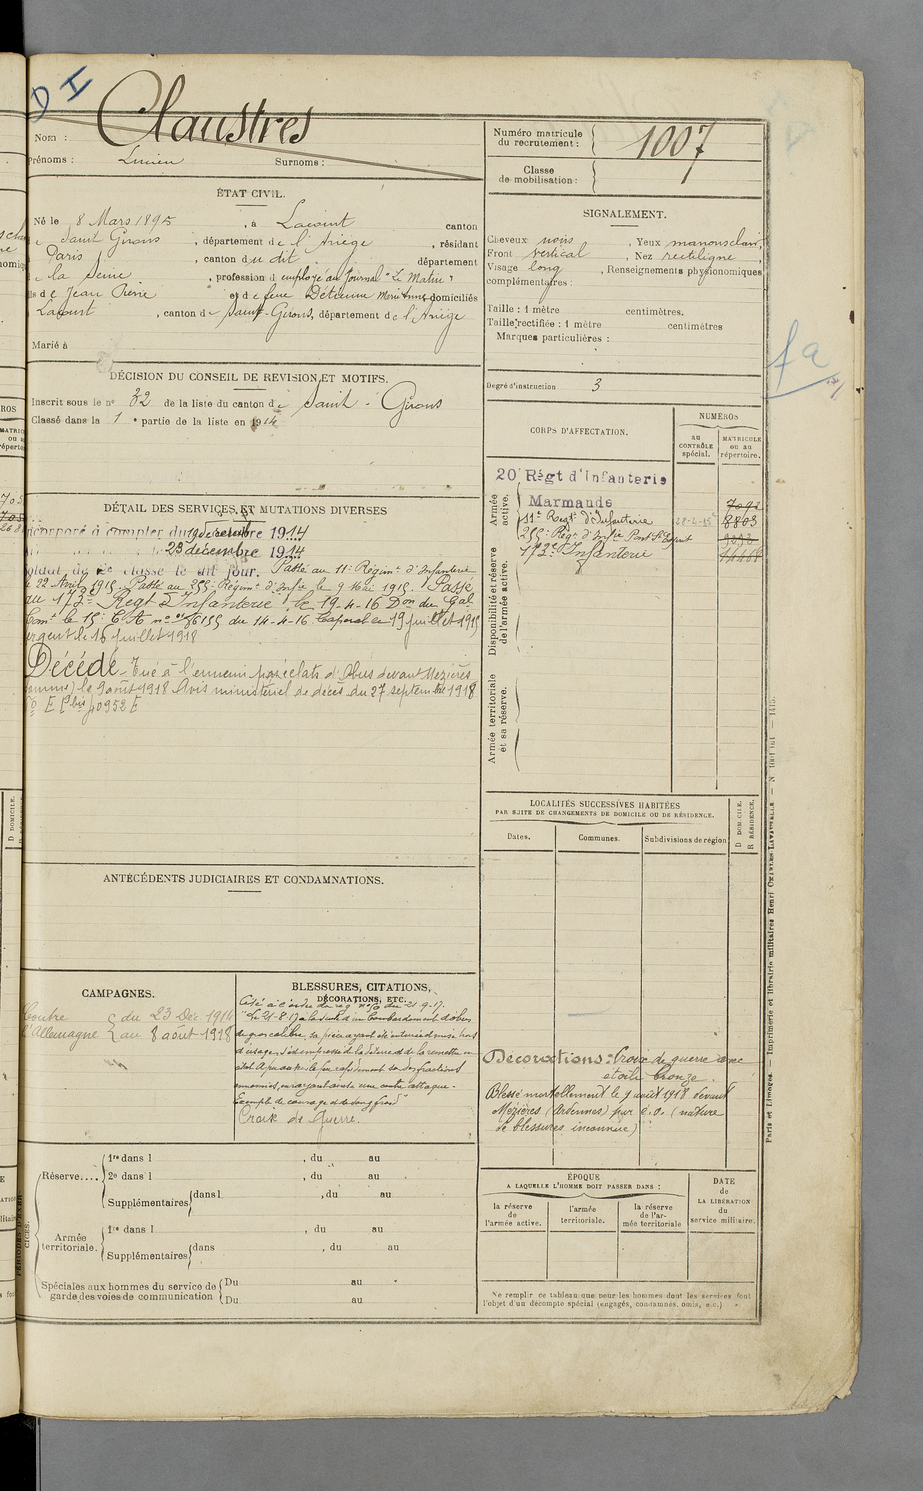 Claustres
Nom :
Prénoms : Lucien Surnoms :
Numéro matricule
du recrutement : 1007
Classe
de mobilisation :
ÉTAT CIVIL.
Né le 8 Mars 1895, à Lacourt canton
de Saint Girons, département de l'Ariège, résidant
Paris, canton du dit département
la Seine, profession d employé au Journal "Le Matin"
de Jean Pierre et de feue Marie Anne domiciliés
Lacourt, canton de Saint-Girons, département de l'Ariège
Marié à
SIGNALEMENT.
Cheveux noirs, Yeux marrons clair,
Front vertical, Nez rectiligne,
Visage long, Renseignements physionomiques
complémentaires :
Taille : 1 mètre centimètres.
Taille rectifiée : 1 mètre centimètres
Marques particulières :
Degré d'instruction 3
DÉCISION DU CONSEIL DE REVISION ET MOTIFS.
Inscrit sous le n° 32 de la liste du canton de Saint-Girons
Classé dans la 1e partie de la liste en 1914
DÉTAIL DES SERVICES ET MUTATIONS DIVERSES
Incorporé à compter du 19 decembre 1914
23 décembre 1914
soldat de 2e classe le dit jour. Passé au 11e Régimt d'Infanterie
le 22 Avril 1915. Passé au 255e Régimt d'Infie le 9 Mai 1915. Passé
au 173e Regt d'Infanterie, le 19-4-16 Don du Gal
Comt le 15e C.A. du 14-4-16 Caporal le 19 juillet 1915
sergent le 16 juillet 1918
Décédé - Tué à l'ennemi par éclats d'Obus devant Mézières
(Somme) le 9 août 1918 Avis ministériel de décès du 27 septembre 1918
CORPS D'AFFECTATION.
NUMÉROS
au
CONTRÔLE
spécial.
MATRICULE
ou au
répertoire.
Armée
active.
Disponibilité et réserve
de l'armée active.
Armée territoriale
et sa réserve.
20 Régt d'Infanterie
Marmande
11e Regt d'Infanterie 8803
255e Régt d'Infie Pont St Esprit
173e Infanterie
LOCALITÉS SUCCESSIVES HABITÉES
PAR SUITE DE CHANGEMENTS DE DOMICILE OU DE RÉSIDENCE.
Dates. Communes. Subdivisions de région
D DOMICILE.
R RÉSIDENCE.
ANTÉCÉDENTS JUDICIAIRES ET CONDAMNATIONS.
CAMPAGNES.
Contre
l'Allemagne
du 23 Déc. 1914
au 8 août 1918
BLESSURES, CITATIONS,
DÉCORATIONS, ETC.
Cité à l'ordre du rég du 21-9-17.
"Le 21-8-17 à la suite d'un bombardement d'obus
de gros calibre, sa pièce ayant été enterrée et mise hors
d'usage, s'est empressé de la déterrer et de la remettre en
ennemies, enrayant ainsi une contre attaque.
Exemple de courage et de sang froid"
Croix de Guerre.
Décorations : Croix de guerre avec
etoile bronze.
Blessé mortellement le 9 août 1918 devant
Mézières (Ardennes) par e.o. (nature
de blessures inconnue)
Réserve.... 1re dans l , du au
2e dans l , du au
Supplémentaires dans l , du au
Armée
territoriale. 1re dans l , du au
Supplémentaires dans , du au
Spéciales aux hommes du service de
garde des voies de communication
Du au
Du au
ÉPOQUE
A LAQUELLE L'HOMME DOIT PASSER DANS :
la réserve
de
l'armée active.
l'armée
territoriale.
la réserve
de l'ar-
mée territoriale
DATE
de
LA LIBÉRATION
du
service militaire.
Ne remplir ce tableau que pour les hommes dont les services font
l'objet d'un décompte spécial (engagés, condamnés, omis, e.c.)
Paris et Limoges. — Imprimerie et librairie militaires Henri CHARLES-LAVAUZELLE